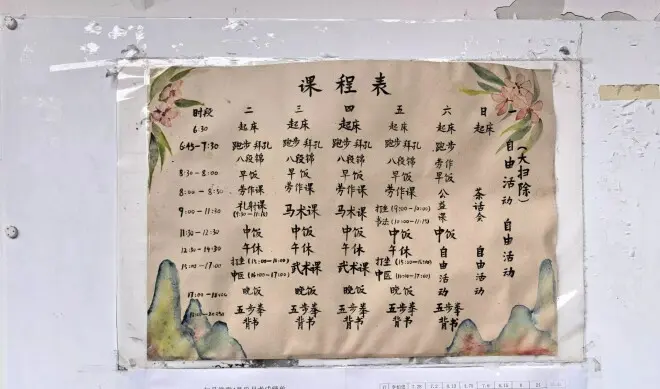 课程表
时段 二 三 四 五 六 日 一
6:30 起床 起床 起床 起床 起床 起床
6:45-7:30 跑步 拜孔 跑步 拜孔 跑步 拜孔 跑步 拜孔 跑步
八段锦 八段锦 八段锦 八段锦 劳作
早饭 早饭 早饭 早饭 早饭
8:00 - 8:50 劳作课 劳作课 劳作课 劳作课 公益课
9:00 - 11:30 礼射课 马术课 马术课 打坐(9:00-10:00) 茶话会
书法
11:30 - 12:30 中饭 中饭 中饭 中饭 中饭
12:30 - 14:30 午休 午休 午休 午休 自由活动 自由活动
15:00 - 17:00 打坐(15:00-16:00) 武术课 武术课 打坐(15:00-16:00)
中医(16:00-17:00) 中医(16:00-17:00)
晚饭 晚饭 晚饭 晚饭 晚饭
五步拳 五步拳 五步拳 五步拳 五步拳
背书 背书 背书 背书 背书
自由活动 自由活动
(大扫除)